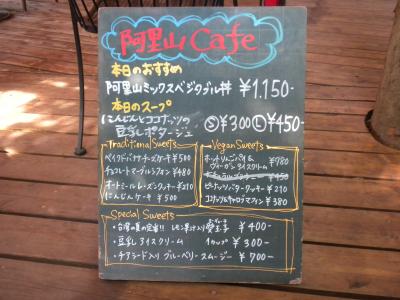 阿里山 Cafe
本日のおすすめ
阿里山ミックスベジタブル丼 ¥1.150-
本日のスープ
にんじんとココナッツの
豆乳ポタージュ Ⓢ¥300 Ⓛ¥450-
Traditional Sweets
ベイクドバナナチーズケーキ ¥500
チョコレートマーブルシフォン ¥480
オートミールレーズンクッキー ¥210
にんじんケーキ ¥500
Vegan Sweets
ホットりんごパイ&
ヴィーガンアイスクリーム ¥980
¥450-
ピーナッツバタークッキー ¥210
ココナッツ&キャロブマフィン ¥380
Special Sweets
・台湾の夏の定番!! レモン果汁入り愛玉子 オーギョーチ ¥400-
・豆乳アイスクリーム 1カップ ¥300-
・チアシード入り ブルーベリースムージー ¥700-